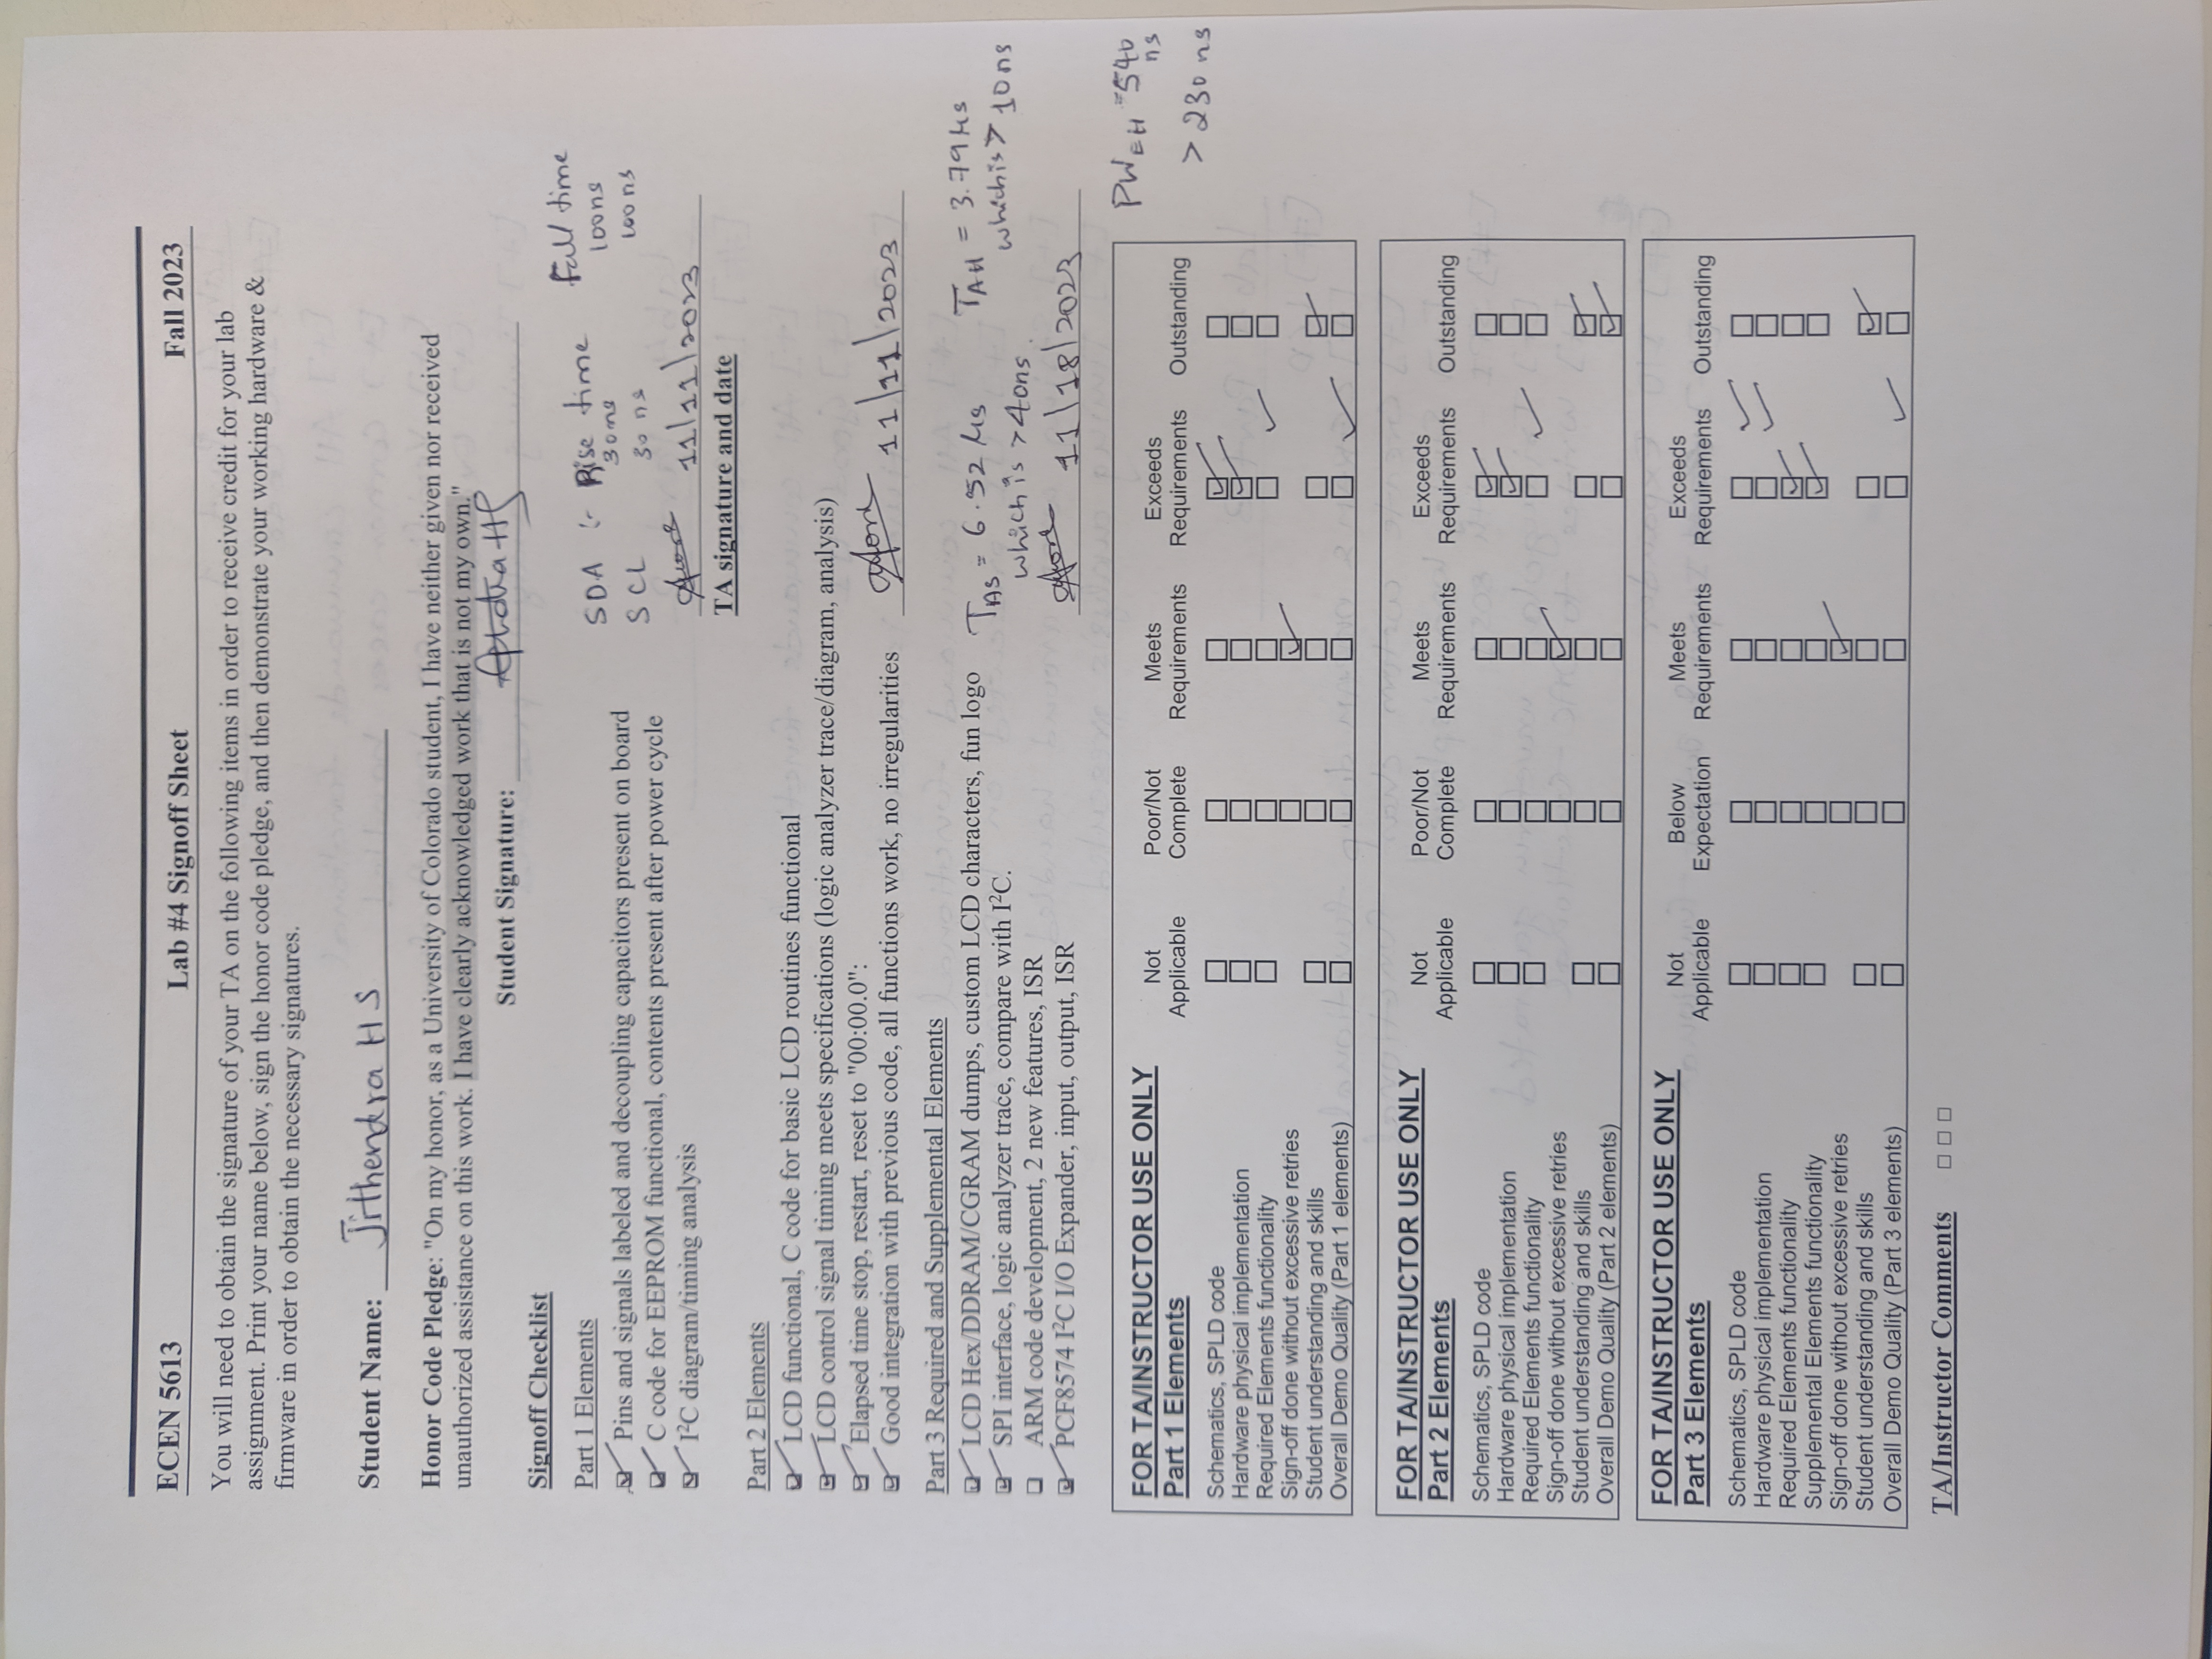 ECEN 5613 Lab #4 Signoff Sheet Fall 2023
You will need to obtain the signature of your TA on the following items in order to receive credit for your lab
assignment. Print your name below, sign the honor code pledge, and then demonstrate your working hardware &
firmware in order to obtain the necessary signatures.
Student Name: Jithendra H S
Honor Code Pledge: "On my honor, as a University of Colorado student, I have neither given nor received
unauthorized assistance on this work. I have clearly acknowledged work that is not my own."
Student Signature:
Signoff Checklist
Part 1 Elements
Pins and signals labeled and decoupling capacitors present on board
C code for EEPROM functional, contents present after power cycle
I²C diagram/timing analysis
SDA :- Rise time Fall time
30ns 100ns
SCL 30 ns 100 ns
11/11/2023
TA signature and date
Part 2 Elements
LCD functional, C code for basic LCD routines functional
LCD control signal timing meets specifications (logic analyzer trace/diagram, analysis)
Elapsed time stop, restart, reset to "00:00.0":
Good integration with previous code, all functions work, no irregularities 11/11/2023
Part 3 Required and Supplemental Elements
LCD Hex/DDRAM/CGRAM dumps, custom LCD characters, fun logo
SPI interface, logic analyzer trace, compare with I²C.
ARM code development, 2 new features, ISR
PCF8574 I²C I/O Expander, input, output, ISR
TAS = 6.52 μs TAH = 3.79 μs
which is > 40ns. which is > 10ns
11/18/2023
PWEH = 540
ns
> 230 ns
FOR TA/INSTRUCTOR USE ONLY
Part 1 Elements
Not Applicable Poor/Not Complete Meets Requirements Exceeds Requirements Outstanding
Schematics, SPLD code
Hardware physical implementation
Required Elements functionality
Sign-off done without excessive retries
Student understanding and skills
Overall Demo Quality (Part 1 elements)
FOR TA/INSTRUCTOR USE ONLY
Part 2 Elements
Not Applicable Poor/Not Complete Meets Requirements Exceeds Requirements Outstanding
Schematics, SPLD code
Hardware physical implementation
Required Elements functionality
Sign-off done without excessive retries
Student understanding and skills
Overall Demo Quality (Part 2 elements)
FOR TA/INSTRUCTOR USE ONLY
Part 3 Elements
Not Applicable Below Expectation Meets Requirements Exceeds Requirements Outstanding
Schematics, SPLD code
Hardware physical implementation
Required Elements functionality
Supplemental Elements functionality
Sign-off done without excessive retries
Student understanding and skills
Overall Demo Quality (Part 3 elements)
TA/Instructor Comments